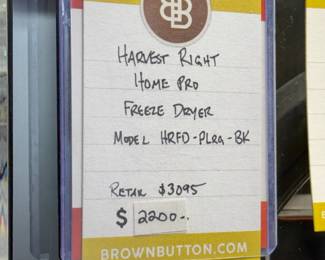 BB
HARVEST RIGHT
HOME PRO
FREEZE DRYER
MODEL HRFD-PLRG-BK
RETAIL $3095
$ 2200-.
BROWNBUTTON.COM